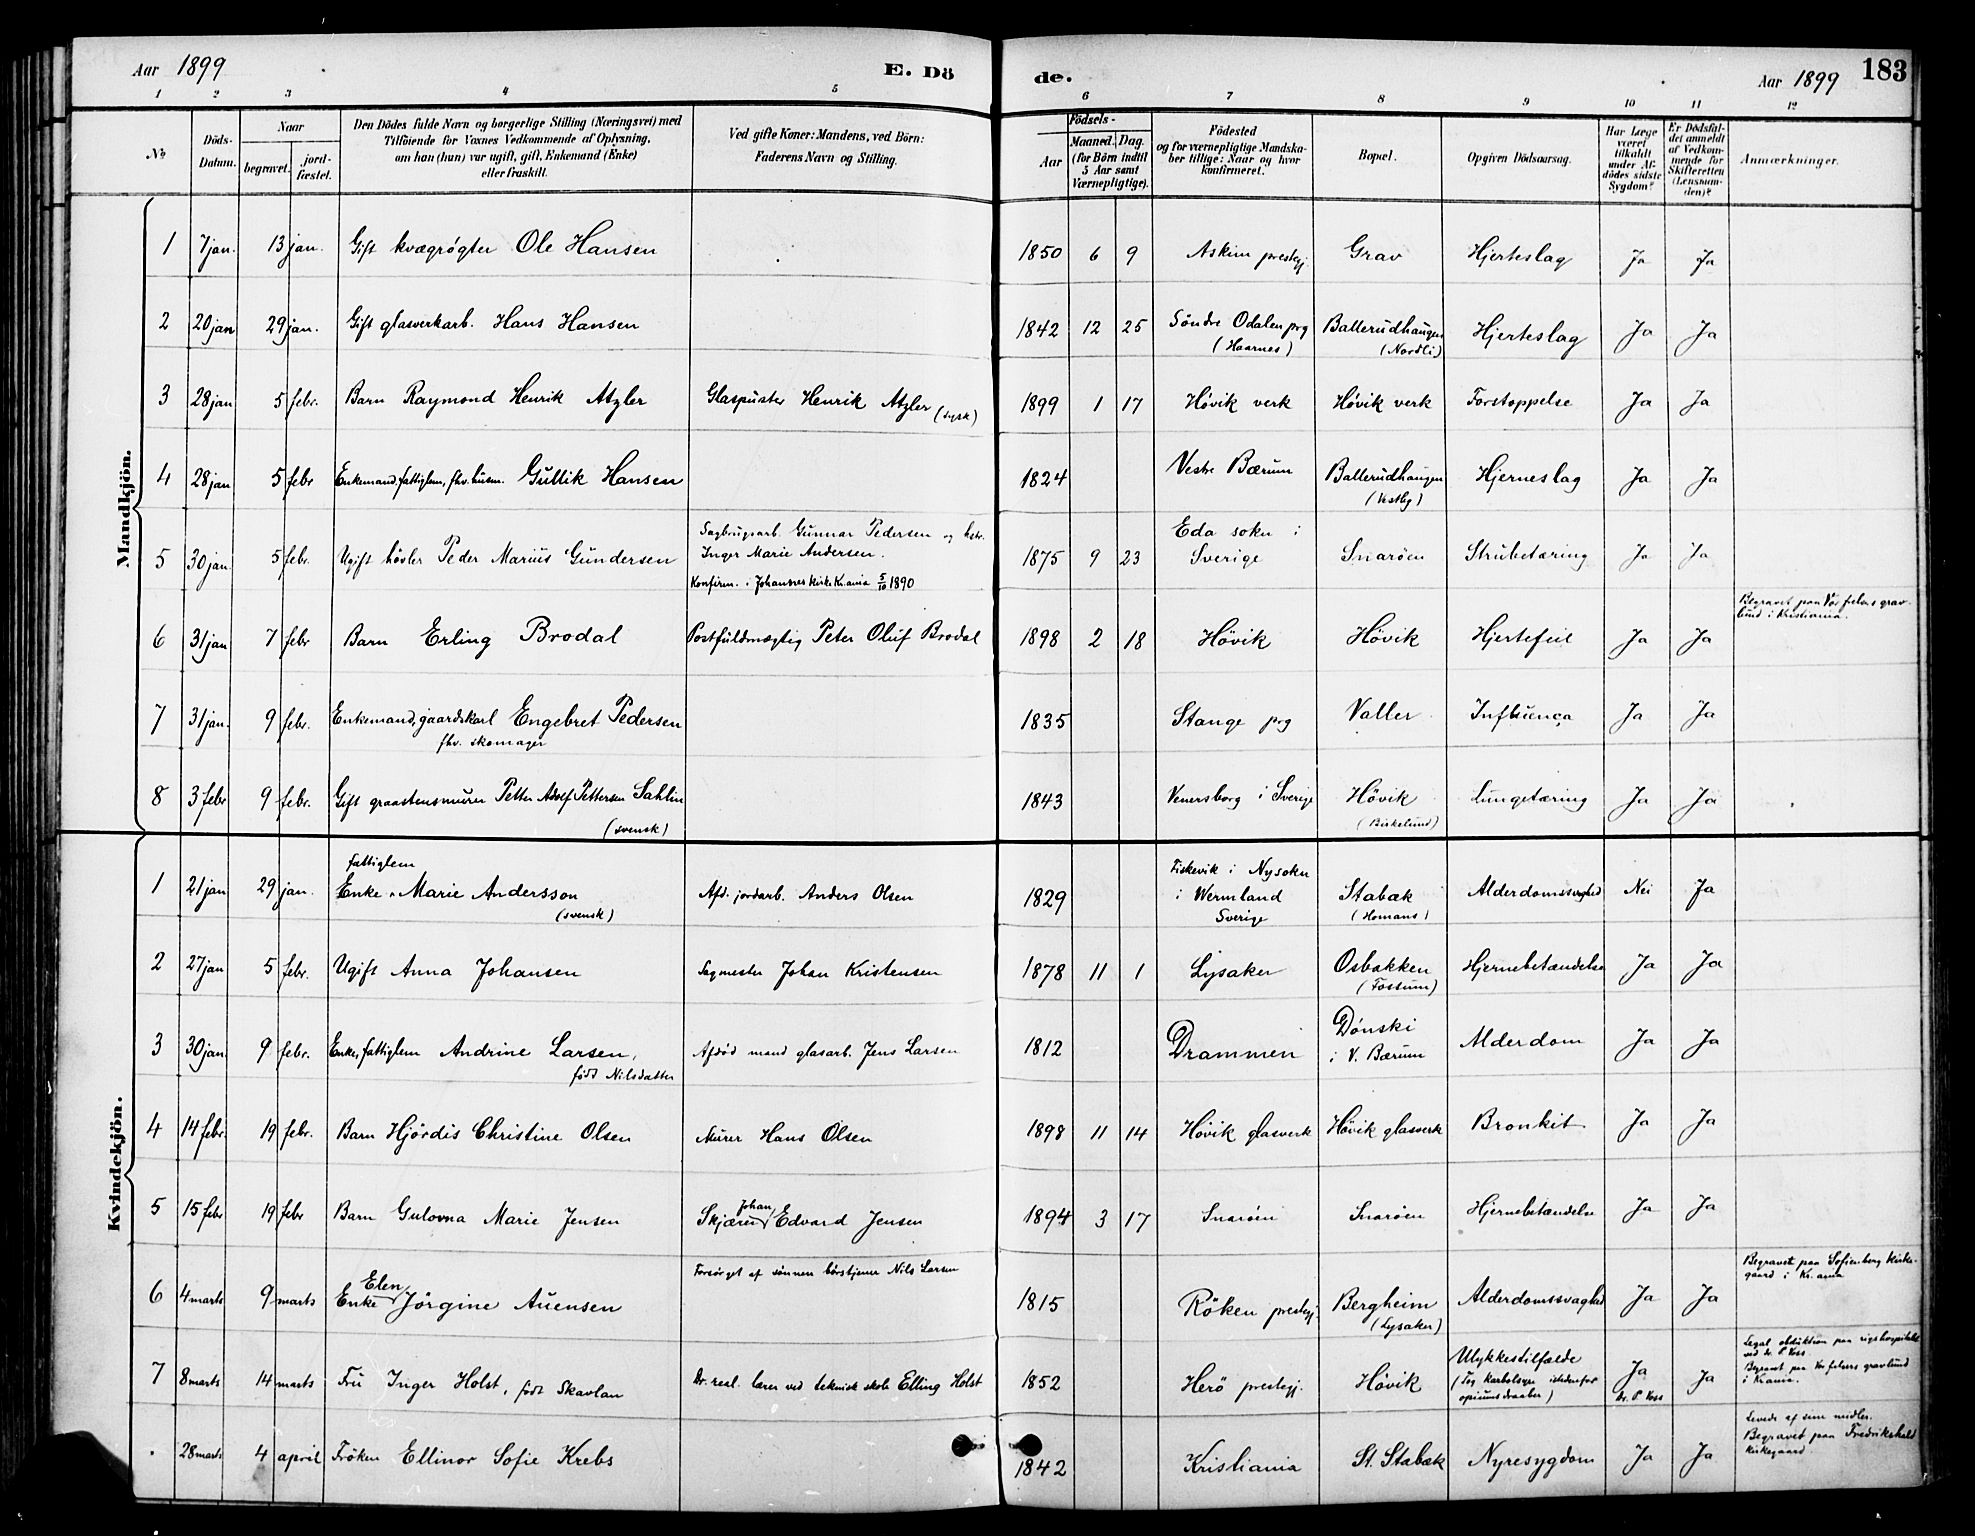 Aar 1899
E. Dö
de.
Aar 1899
183
1 2 3 4 5 6 7 8 9 10 11 12
No
Döds-Datum.
Naar
begravet.
jord-fæstet.
Den Dödes fulde Navn og borgerlige Stilling (Næringsvei) med
Tilföiende for Voxnes Vedkommende af Oplysning,
om han (hun) var ugift, gift, Enkemand (Enke)
eller fraskilt.
Ved gifte Koner: Mandens, ved Börn:
Faderens Navn og Stilling.
Födsels-
Aar
Maaned. Dag.
(for Börn indtil
5 Aar samt
Værnepligtige).
Födested
og for værnepligtige Mandska-
ber tillige: Naar og hvor
konfirmeret.
Bopæl.
Opgiven Dödsaarsag.
Har Læge
været
tilkaldt
under Af-
dödes sidste
Sygdom?
Er Dödsfal-
det anmeldt
af Vedkom-
mende for
Skifteretten
(Lensman-
den)?
Anmærkninger.
Mandkjön.
1 7 jan. 13 jan. Gift kvægrøgter Ole Hansen 1850 6 9 Askim prestegj. Grav Hjerteslag Ja Ja
2 20 jan 29 jan. Gift glasverkarb. Hans Hansen 1842 12 25 Söndre Odalen prg Ballerudhaugen Hjerteslag Ja Ja
(Haarnes) (Nordli)
3 28 jan 5 febr. Barn Raymond Henrik Atzler Glaspuster Henrik Atzler (tysk) 1899 1 17 Høvik verk Høvik verk Forstoppelse Ja Ja
4 28 jan 5 febr Enkemand, fattiglem, fhv. husm. Gullik Hansen 1824 Vestre Bærum Ballerudhaugen Hjerneslag Ja Ja
(Vestby)
Sagbrugsarb. Gunnar Pedersen og hstr. Eda sokn i
5 30 jan. 5 febr. Ugift høvler Peder Marius Gundersen Inger Marie Andersen. 1875 9 23 Sverige Snarøen Strubetæring Ja Ja
Konfirm. i Johannes kirke Kr.ania 5/10 1890
Begravet paa Vor frelsers grav-
lund i Kristiania.
6 31 jan 7 febr Barn Erling Brodal Postfuldmægtig Peter Oluf Brodal 1898 2 18 Hövik Hövik Hjertefeil Ja Ja
7 31 jan. 9 febr. Enkemand, gaardskarl Engebret Pedersen 1835 Stange prg Valler Influença Ja Ja
fhv. skomager
8 3 febr 9 febr. Gift graastensmurer Petter Adolf Pettersen Sahlin 1843 Venersborg i Sverige Hövik Lungetæring Ja Ja
(svensk) (Birkelund)
Kvindekjön.
fattiglem Fiskevik i Nysokn
1 21 jan 29 jan. Enke Marie Andersson Afd. jordarb. Anders Olsen 1829 i Wermland Stabæk Alderdomssvaghed Nei Ja
(svensk) Sverige (Homans)
2 27 jan 5 febr. Ugift Anna Johansen Sagmester Johan Kristensen 1878 11 1 Lysaker Osbakken Hjernebetændelse Ja Ja
(Fossum)
3 30 jan 9 febr. Enke, fattiglem Andrine Larsen, Afdød mand glasarb. Jens Larsen 1812 Drammen Dønski Alderdom Ja Ja
født Nilsdatter i V. Bærum
4 14 febr. 19 febr. Barn Hjördis Christine Olsen Murer Hans Olsen 1898 11 14 Hövik glasverk Hövik glasverk Bronkit Ja Ja
5 15 febr 19 febr Barn Gulovna Marie Jensen Skjærer Johan Edvard Jensen 1894 3 17 Snarøen Snarøen Hjernebetændelse Ja Ja
Forsörget af sönnen börstjener Nils Larsen
Begravet paa Sofienberg kirke-
gaard i Kr.ania
6 4 marts 9 marts Enke Elen Jörgine Auensen 1815 Röken prestegj. Bergheim Alderdomssvaghed Ja Ja
(Lysaker)
Legal obduktion paa rigshospitalet
ved dr. P Voss.
Begravet paa Vor frelsers gravlund
i Kr.ania.
7 8 marts 14 marts Fru Inger Holst, født Skavlan Dr. real. lærer ved teknisk skole Elling Holst 1852 Herö prestegj. Høvik Ulykkestilfælde Ja Ja
(Tog karbolsyre istedenfor
opiumsdraaber)
Dr. P Voss
Levede af sine midler.
Begravet paa Fredrikshald
kirkegaard.
28 marts 4 april Fröken Ellinor Sofie Krebs 1842 Kristiania St. Stabæk Nyresygdom Ja Ja